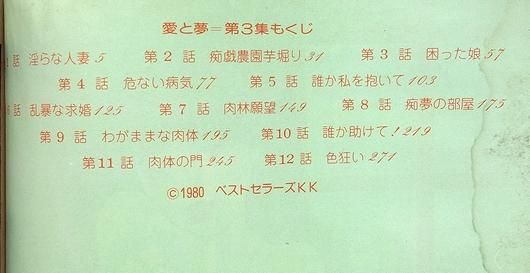 愛と夢=第3集もくじ
1話 淫らな人妻5 第2話 痴戯農園芋堀り31 第3話 困った娘57
第4話 危ない病気77 第5話 誰か私を抱いて103
話 乱暴な求婚125 第7話 肉林願望149 第8話 痴夢の部屋175
第9話 わがままな肉体195 第10話 誰か助けて!219
第11話 肉体の門245 第12話 色狂い271
©1980 ベストセラーズKK